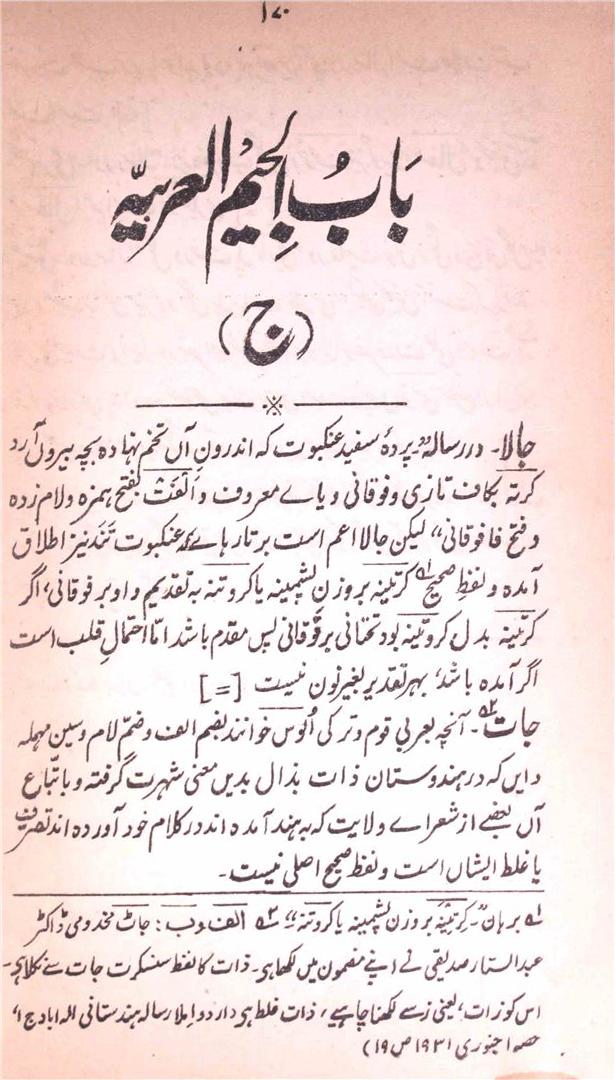 ۱۷۰
بَابُ الجِیْمِ العَرَبِیّہ
(ج)
جالا۔ در رسالہ "پردۂ سفید عنکبوت کہ اندرونِ آں تخم نہادہ بچہ بیروں آرد
کرتہ بکاف تازی و فوقانی و یاے معروف و اَلْفَنْث بفتح ہمزہ و لام زدہ
و فتح فا فوقانی" لیکن جالا اعم است بر تارہاے کہ عنکبوت تَنَد نیز اطلاق
آمدہ و لفظِ صحیح ؎۱ کَرتینہ بر وزنِ پشمینہ یا کروتنہ بہ تقدیم واو بر فوقانی، اگر
کرتینہ بدل کروتینہ بود تحتانی بر فوقانی پس مقدم باشد امّا احتمالِ قلب است
اگر آمدہ باشد، بہر تقدیر بغیر نون نیست [=]
جات ؎۲۔ آنچہ بعربی قوم و ترکی اُلوس خوانند بضم الف و ضم لام و سین مہملہ
و ایں کہ در ہندوستان ذات بذال بدیں معنی شہرت گرفتہ و باتّباع
آں بعضے از شعراے ولایت کہ بہ ہند آمدہ اند در کلام خود آوردہ اند تصرف
یا غلط ایشاں است و لفظ صحیح اصلی نیست۔
؎۱ برہان "کرتینہ بر وزن پشمینہ یا کروتنہ" ؎۲ الف و ب: جاٹ مخدومی ڈاکٹر
عبدالستار صدیقی نے اپنے مضمون میں لکھا ہی۔ ذات کا لفظ سنسکرت جات سے نکلا ہی۔
اس کو زات، یعنی ز سے لکھنا چاہیے، ذات غلط ہی دار دو املا رسالہ ہندستانی الہ اباد ج ۱،
حصہ ۱ جنوری ۱۹۳۱ ص ۱۹)